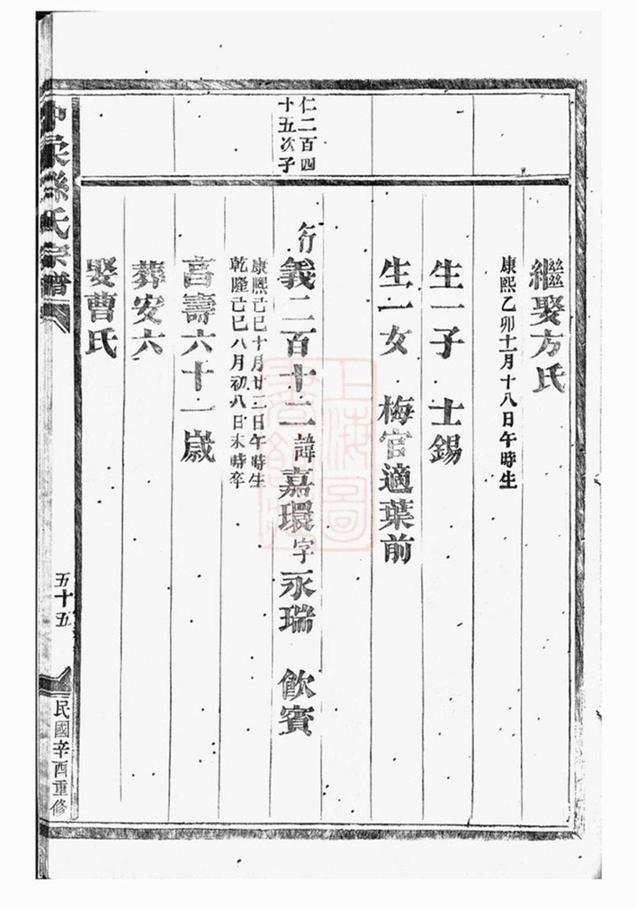 繼娶方氏
康熙乙卯十一月十八日午時生
生一子 士錫
生一女 梅官適葉前
仁二百四
十五次子
行義二百十二諱嘉環字永瑞 飲賓
康熙己巳十月廿二日午時生
乾隆己巳八月初八日未時卒
享壽六十一歲
葬安六
娶曹氏
孫氏宗譜
五十五
民國辛酉重修
上海圖